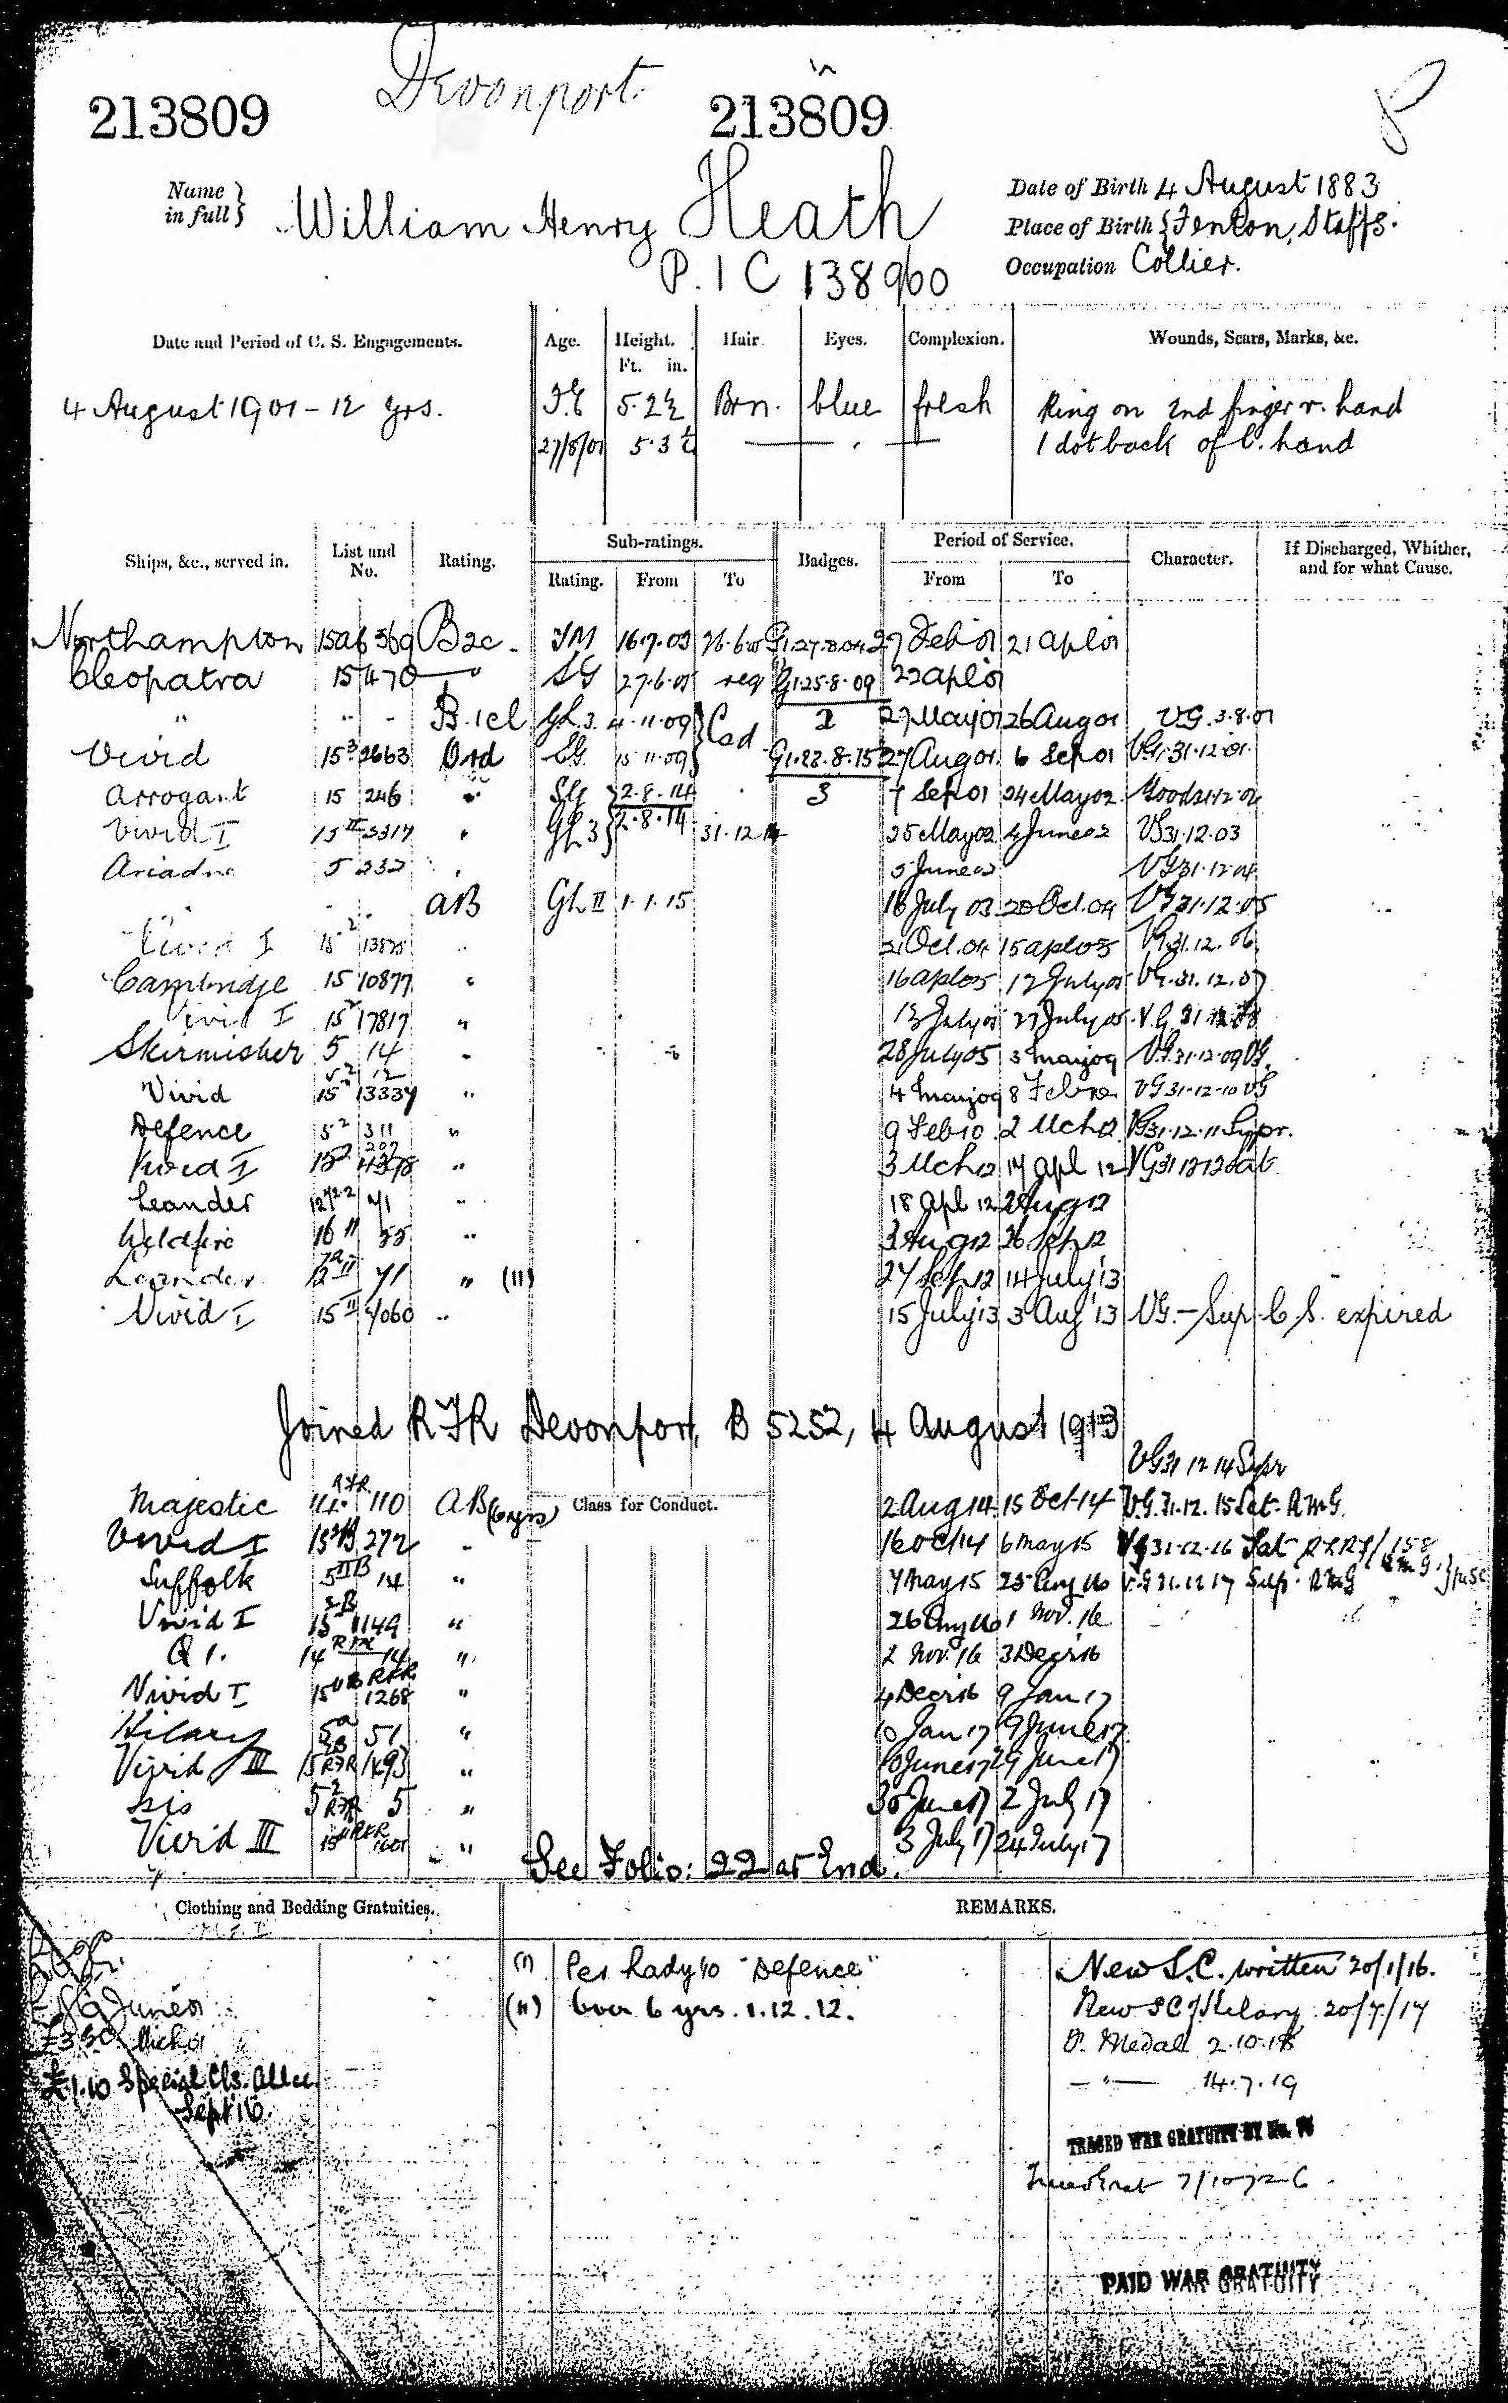 Devonport
213809 213809
Name in full} William Henry Heath
Date of Birth 4 August 1883
Place of Birth { Fenton, Staffs.
Occupation Collier.
P. 1 C 138900
Date and Period of C. S. Engagements. Age. Height. Ft. in. Hair Eyes. Complexion. Wounds, Scars, Marks, &c.
4 August 1901 - 12 yrs. 5.2½ Brn. blue fresh Ring on 2nd finger r. hand
27/8/01 5.3½ 1 dot back of l. hand
Ships, &c., served in. List and No. Rating. Sub-ratings. Rating. From To Badges. Period of Service. From To Character. If Discharged, Whither, and for what Cause.
Northampton 369 B2c. 27 Feb 01 21 Apl 01
Cleopatra 15 470 " SG 27.6.01 G1.25.8.09 22 Apl 01
" B.1cl GL.3. 4.11.09 2 27 May 01 26 Aug 01 VG. 3.8.01
Vivid 15³ 2663 Ord SG 15.11.09 G1.23.8.15 27 Aug 01 6 Sep 01 VG.31.12.01
Arrogant 15 246 " SG 2.8.14 3 7 Sep 01 24 May 02
Vivid I 15 II 3317 " GL3 2.8.14 31.12.14 25 May 02 4 June 02 VG31.12.03
Ariadne 5 232 " 5 June 02 VG31.12.04
AB GL II 1.1.15 16 July 03 20 Oct.04 VG31.12.05
Vivid I 15² " 21 Oct.04 15 Apl 05 VG.31.12.06
Cambridge 15 10877 " 16 Apl 05 12 July 05 VG.31.12.07
Vivid I 15² 17817 " 13 July 05 27 July 05 V.G 31.12.08
Skirmisher 5 14 " 28 July 05 3 May 09 VG.31.12.09 VG.
Vivid 15² 13334 " 4 May 09 8 Feb 10 VG31.12.10 VG
Defence 5² 311 " 9 Feb 10 2 Mch 12 VG31.12.11 Supr.
Vivid I 15² " 3 Mch 12 17 Apl 12 VG31 12 12 Sat.
Leander 41 " 18 Apl 12 2 Aug 12
Wildfire 16 II 55 " 3 Aug 12 26 Sep 12
Leander 12 II 41 " (II) 27 Sep 12 14 July 13
Vivid I 15 II 4060 " 15 July 13 3 Aug 13 VG.-Sup C.S. expired
Joined RFR Devonport, B 5252, 4 August 1913
VG31 12 14 Supr
Majestic RFR 110 AB (6 yrs) Class for Conduct. 2 Aug 14 15 Oct 14 V.G.31.12.15 Sat. RMG.
Vivid I 272 " 16 Oct 14 6 May 15 VG31.12.16 Sat
Suffolk 5 IIB 14 " 7 May 15 25 Aug 16 V.G 31.12.17 Sup. RMG
Vivid I 15 2B 1149 " 26 Aug 16 1 Nov. 16
Q 1. 14 RFR 14 " 2 Nov. 16 3 Decr 16
Vivid I RFR 1268 " 4 Decr 16 9 Jan 17
Hilary 51 " 10 Jan 17 9 June 17
Vivid III 15 RFR 1493 " 10 June 17 29 June 17
Isis 5² RFR 5 " 30 June 17 2 July 17
Vivid III RFR " 3 July 17 24 July 17
See Folio: 22 at End.
Clothing and Bedding Gratuities. REMARKS.
(I) Per Lady 10 "Defence" New S.C. written 20/1/16.
(II) Over 6 yrs. 1.12.12. New SC Hilary 20/7/17
Medal 2.10.18
£1.10 Special Cls. Allce. Sept 16. -"- 14.7.19
TRACED WAR GRATUITY BY No.
PAID WAR GRATUITY